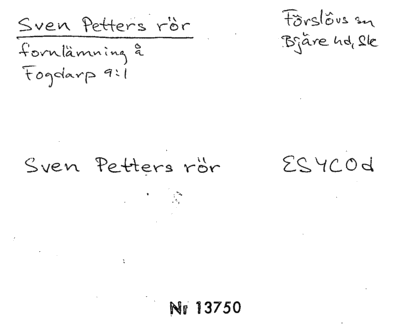 Sven Petters rör
fornlämning å
Fogdarp 9:1
Förslövs sn
Bjäre hd, Sk
Sven Petters rör
ES4C0d
Nr 13750